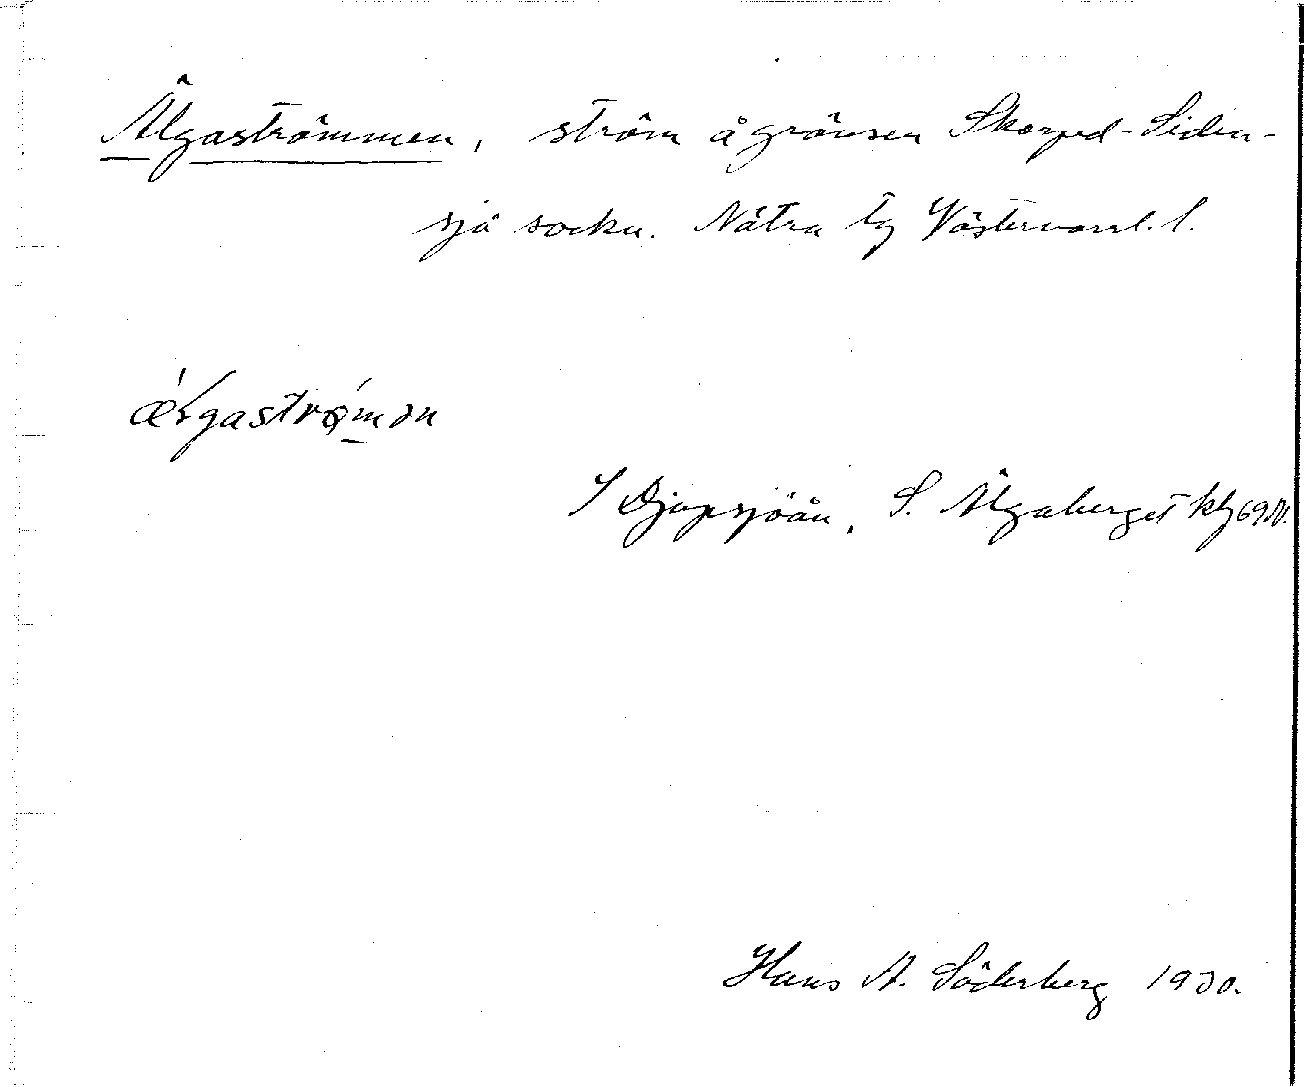 Älgaströmmen, ström å gränsen Skorped-Siden-
sjö sockn. Nätra tg Västernorrl. l.
Djupsjöån, S. Älgaberget kbg 69
Hans A. Söderberg 1930.